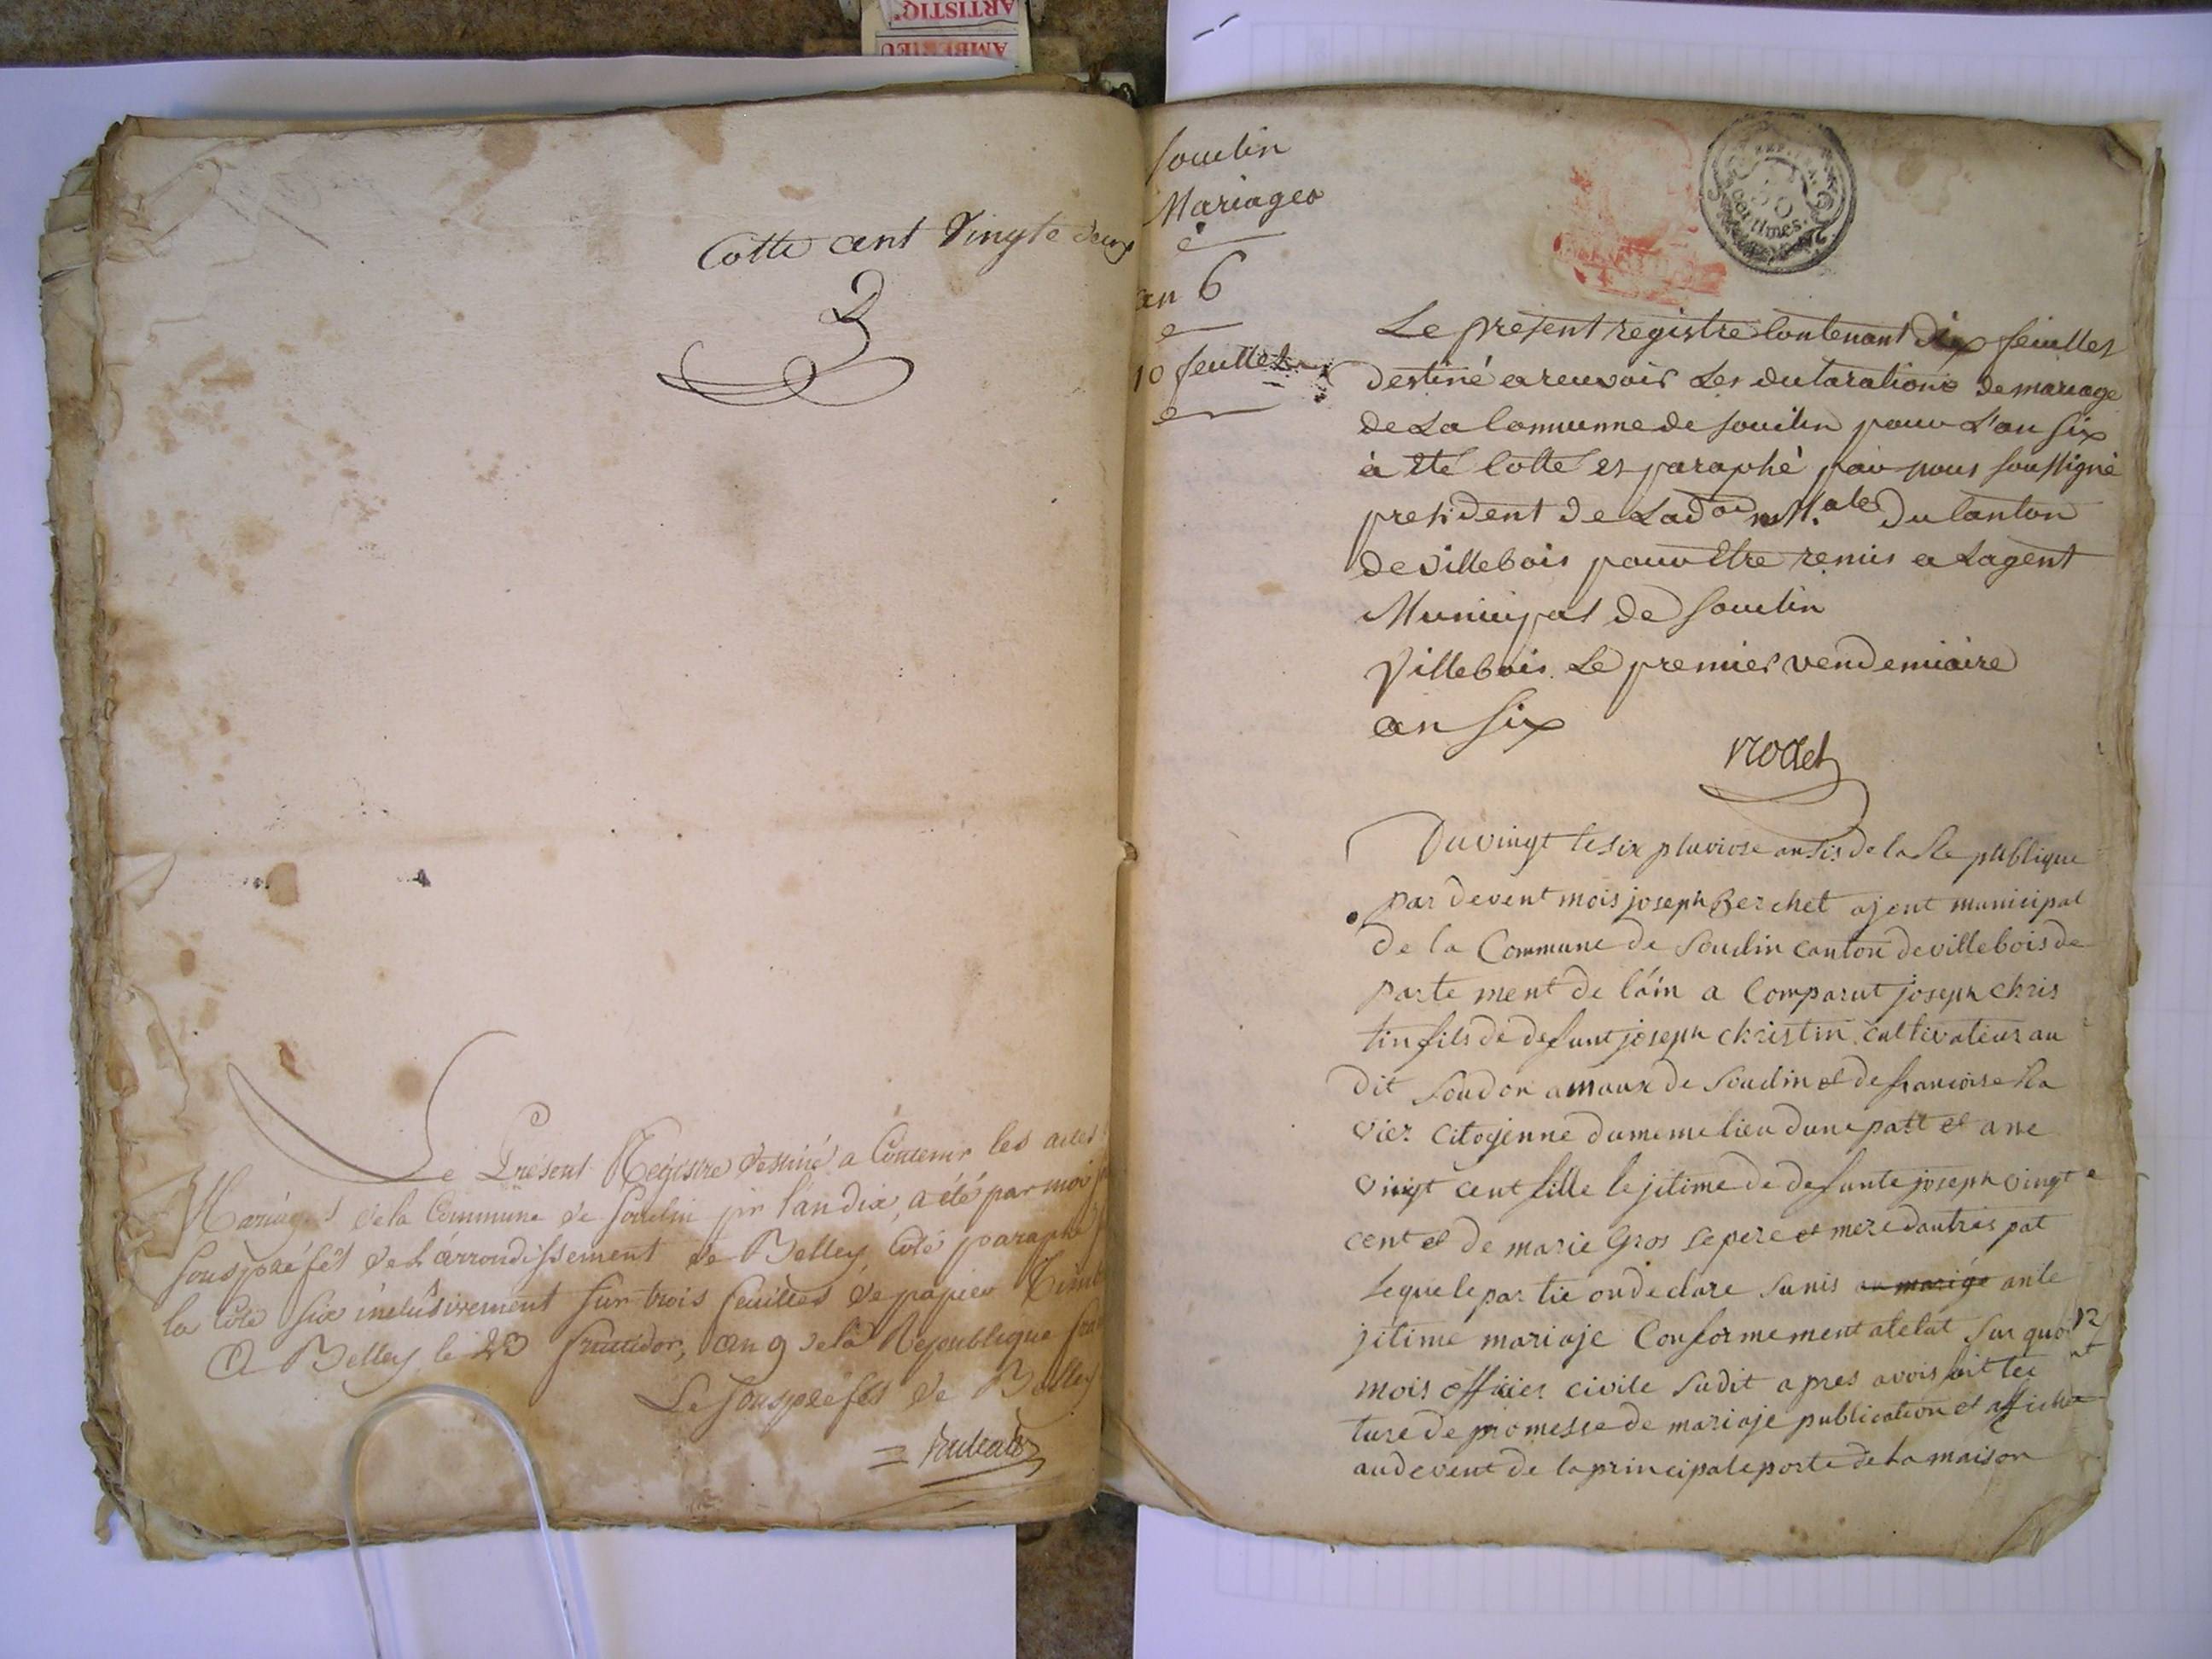 ARTISTIQ
AMBERIEU
Cotte cent vingte deux
Le Présent Registre destiné a Contenir les actes
Mariages de la Commune de Souclin pr l'an dix, a été par moi
souspréfêt de l'arrondissement de Belley Coté paraphé
la Cote six inclusivement sur trois feuilles de papier Timb
A Belley le 23 fructidor, an 9 de la Republique fra
Le souspréfêt de Belley
Souclin
Mariages
an 6
10 feuillets
50
Centimes
Le present registre Contenant dix feuilles
destiné a reuvoir Les declarations de mariage
de La Commune de souclin pour L'an six
à été Cotté et paraphé par nous soussigné
president de Ladon mle du Canton
de villebois pour être remis a Lagent
Municipal de Souclin
Villebois Le premier vendemiaire
an six
rodet
Du vingt le six pluviose an sis de la Re publique
par devent mois joseph Berchet ajent municipal
de la Commune de Souclin canton de villebois de
parte ment de l'ain a Comparut joseph chris
tin fils de defunt joseph christin cultivateur au
dit soudon amaux de Souclin et de francoise Ra
vier Citoyenne du meme lieu dune patt et ane
vingt cent fille lejitime de defunte joseph vingt
cent et de marie Gros se pere et mere dautres pat
Lequele partie on declare sunis au marige an le
jitime mariaje Conformement a letat sur quoi
mois officier civile sudit apres avois fait lec
ture de promesse de mariaje publication et affiche
au devent de la principale porte de La maison